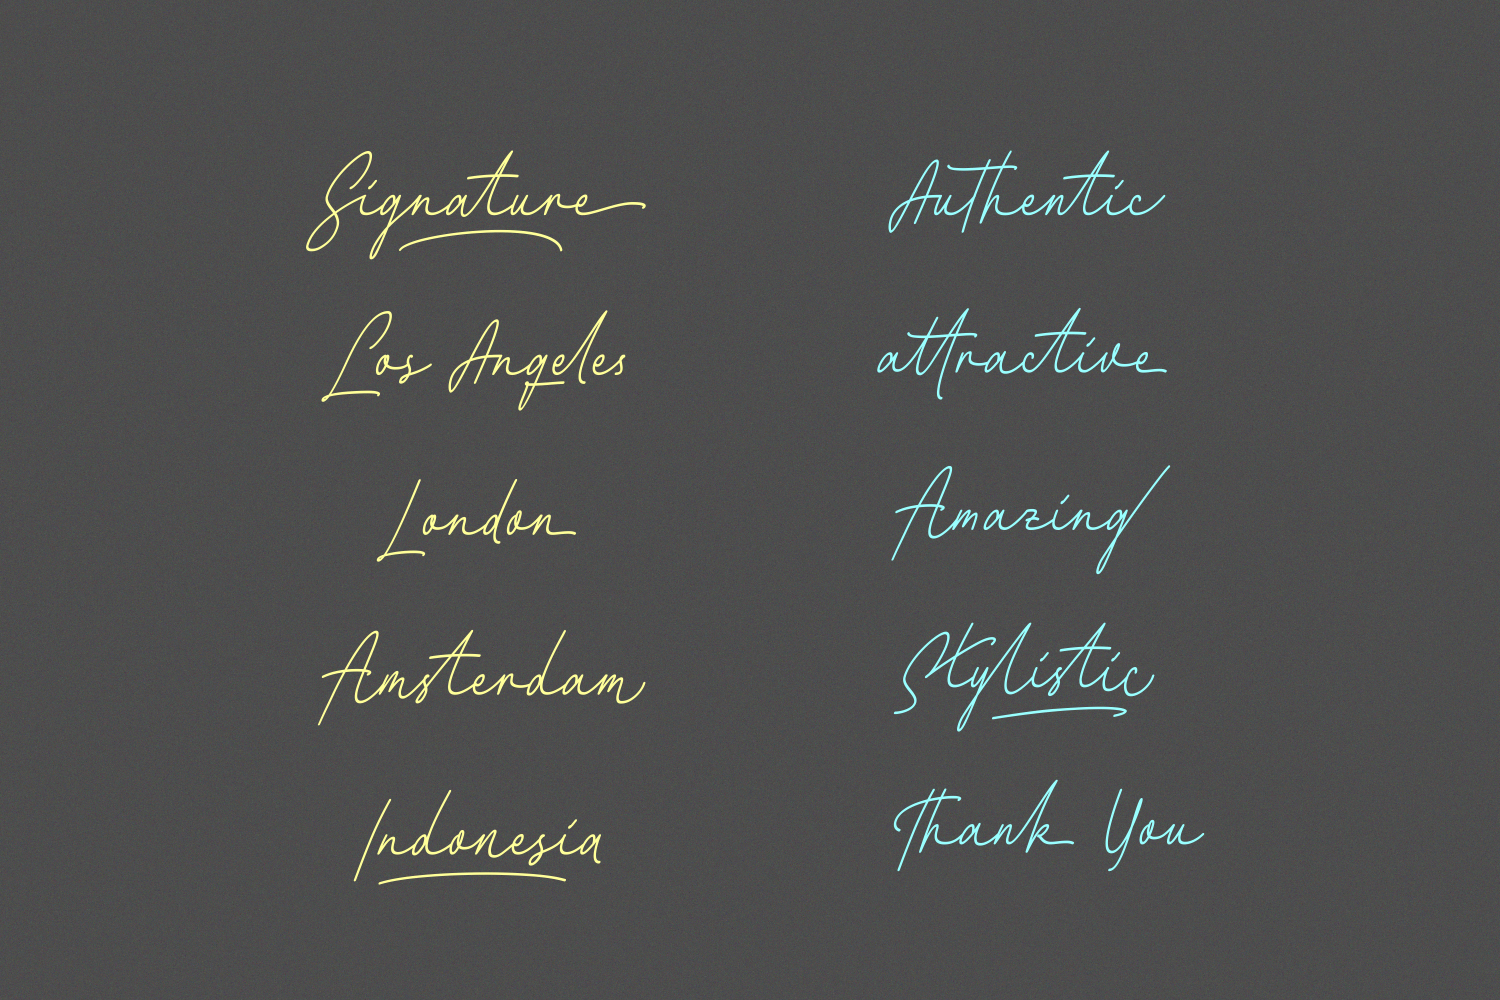 Signature
Los Angeles
London
Amsterdam
Indonesia
Authentic
attractive
Amazing
Stylistic
Thank You